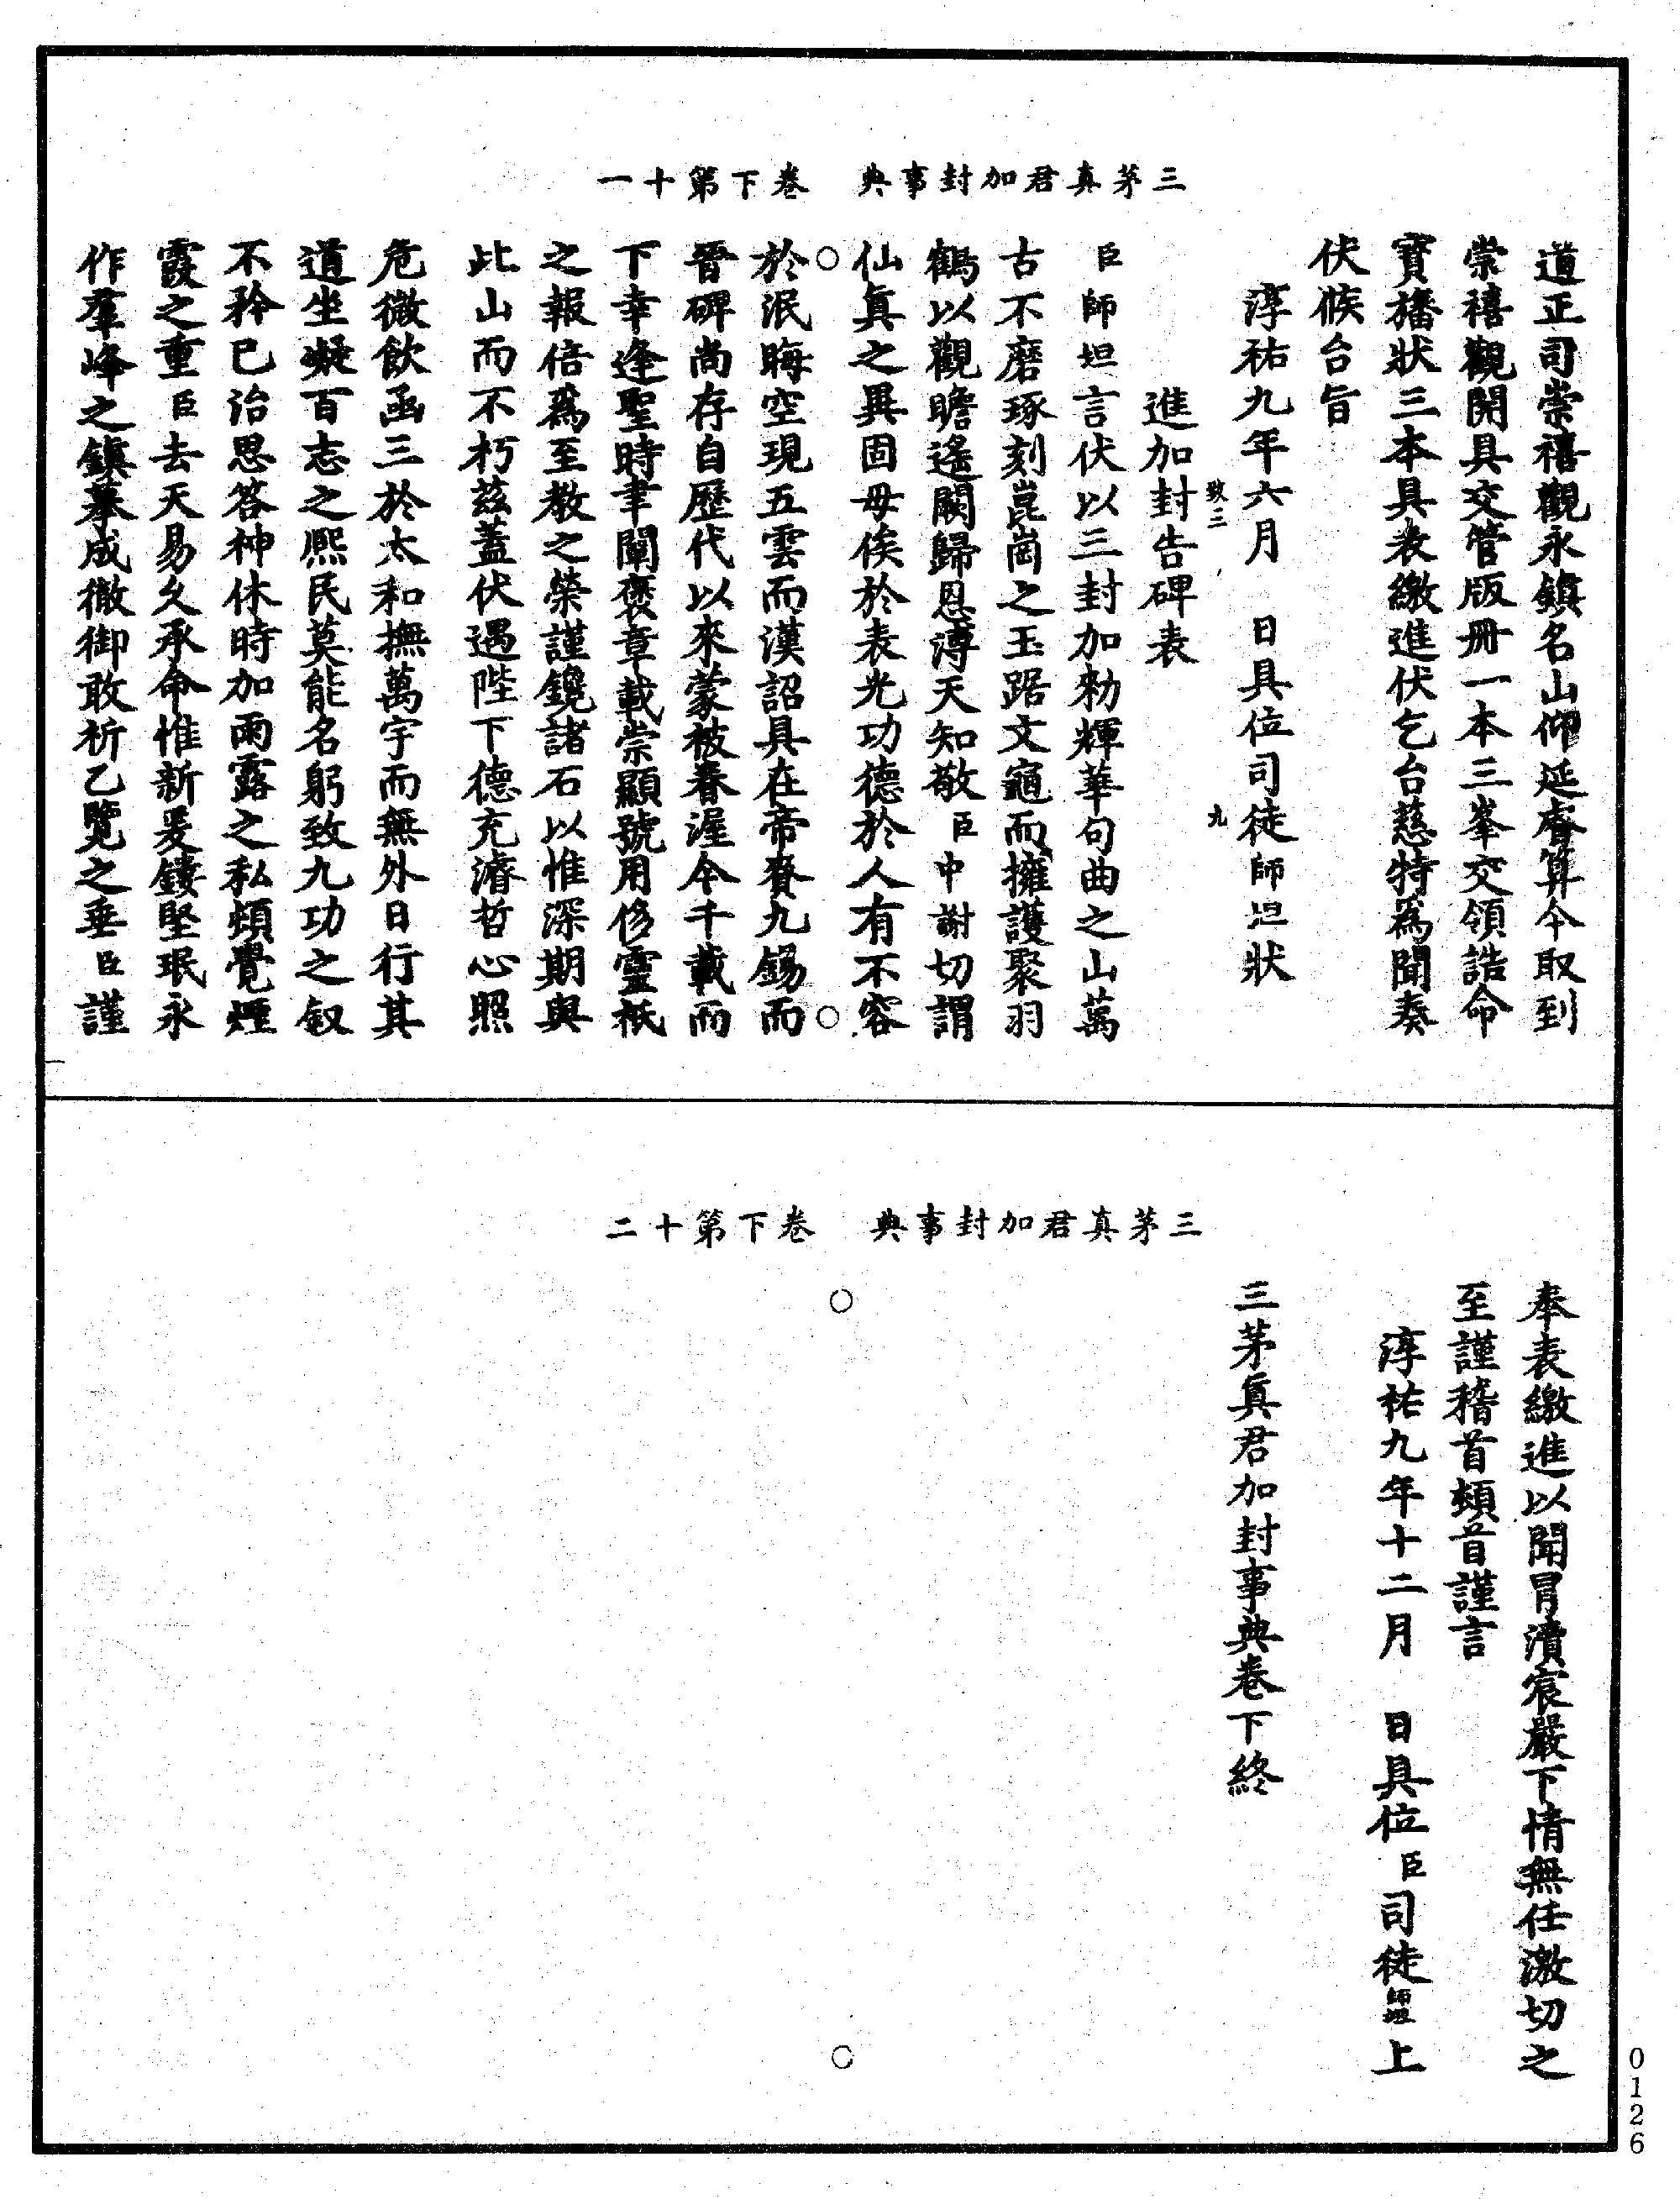 三茅真君加封事典　卷下第十一
道正司崇禧觀永鎮名山仰延睿算今取到
崇禧觀開具交管版冊一本三峯交領誥命
寶旛狀三本具表繳進伏乞台慈特爲聞奏
伏候台旨
淳祐九年六月　日具位司徒師坦狀
致三　九
進加封告碑表
臣師坦言伏以三封加勑輝華句曲之山萬
古不磨琢刻崑崗之玉踞文龜而擁護聚羽
鶴以觀瞻遙闕歸恩溥天知敬臣中謝切謂
仙眞之異固毋俟於表光功德於人有不容
於泯晦空現五雲而漢詔具在帝賚九錫而
晉碑尚存自歷代以來蒙被春渥今千載而
下幸逢聖時聿闡褒章載崇顯號用侈靈祇
之報倍爲至教之榮謹鑱諸石以惟深期與
此山而不朽茲蓋伏遇陛下德充濬哲心照
危微飲函三於太和撫萬宇而無外日行其
道坐凝百志之熈民莫能名躬致九功之叙
不矜已治思答神休時加雨露之私頻覺煙
霞之重臣去天易久承命惟新爰鏤堅珉永
作羣峰之鎮摹成徹御敢祈乙覽之垂臣謹
三茅真君加封事典　卷下第十二
奉表繳進以聞冒瀆宸嚴下情無任激切之
至謹稽首頼首謹言
淳祐九年十二月　日具位臣司徒師坦上
三茅眞君加封事典卷下終
0126